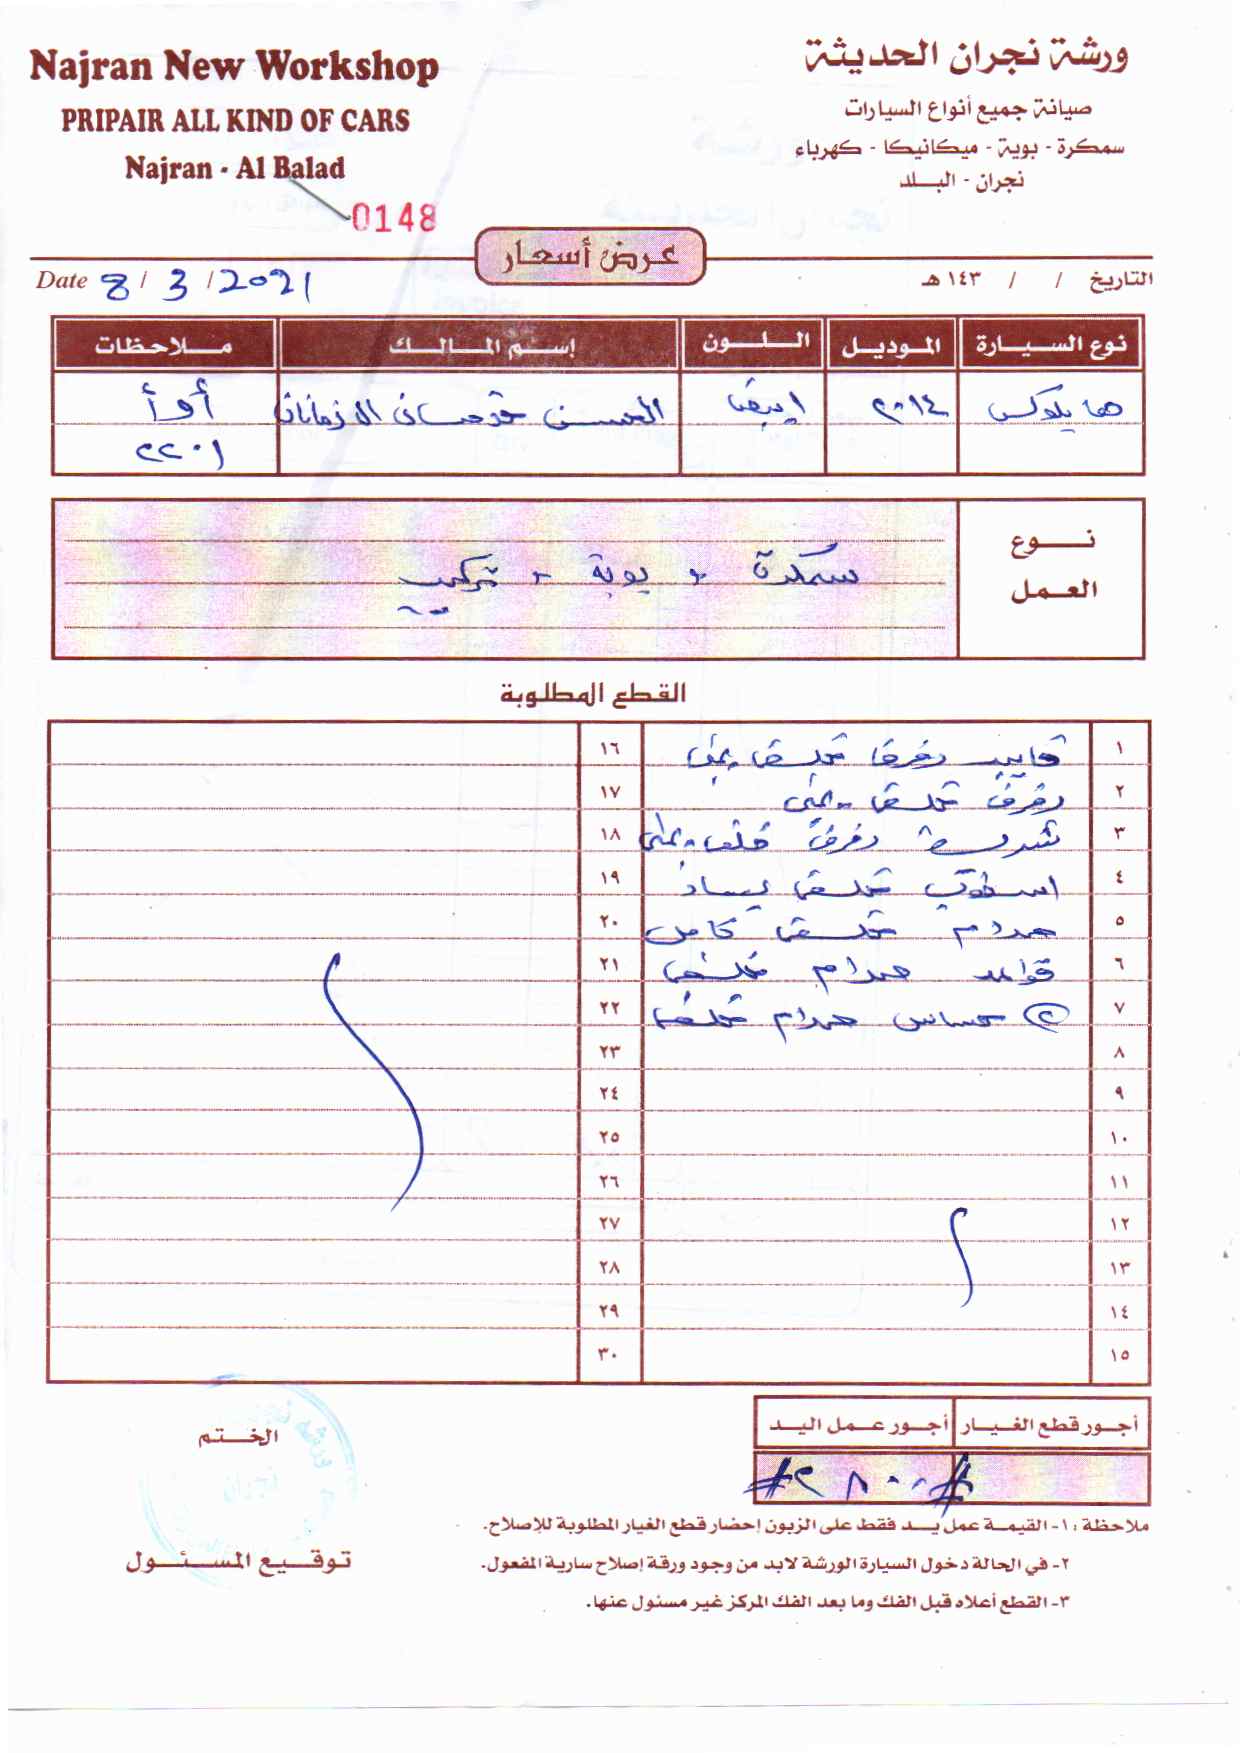 Najran New Workshop
PRIPAIR ALL KIND OF CARS
Najran - Al Balad
0148
ورشة نجران الحديثة
صيانة جميع أنواع السيارات
سمكرة - بوية - ميكانيكا - كهرباء
نجران - البلد
عرض أسعار
Date 8 / 3 / 2021
التاريخ / / ١٤٣ هـ
نوع السيارة الموديل اللون إسم المالك ملاحظات
هايلوكس ٢٠١٤ ابيض الحسن أ و أ
٢٢٠١
نوع العمل
سمكرة + بوية + تركيب
القطع المطلوبة
١ رفرف خلفي يمين ١٦
٢ رفرف خلفي يمين ١٧
٣ رفرف خلفي يمين ١٨
٤ اسطوب خلفي يسار ١٩
٥ صدام خلفي كامل ٢٠
٦ قواعد صدام خلفي ٢١
٧ ٢ حساس صدام خلفي ٢٢
٨ ٢٣
٩ ٢٤
١٠ ٢٥
١١ ٢٦
١٢ ٢٧
١٣ ٢٨
١٤ ٢٩
١٥ ٣٠
أجور قطع الغيار أجور عمل اليد
#٢٨٠٠#
الختم
ملاحظة : ١- القيمة عمل يد فقط على الزبون إحضار قطع الغيار المطلوبة للإصلاح.
٢- في الحالة دخول السيارة الورشة لابد من وجود ورقة إصلاح سارية المفعول.
٣- القطع أعلاه قبل الفك وما بعد الفك المركز غير مسئول عنها.
توقيع المسئول